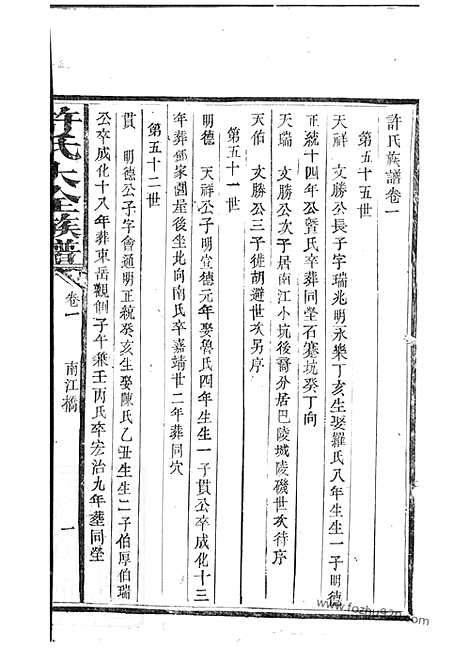 許氏族譜卷一
第五十五世
天祥 文勝公長子字瑞兆明永樂丁亥生娶羅氏八年生生一子明德
正統十四年公曁氏卒葬同塋石寨坑癸丁向
天瑞 文勝公次子居南江小坑後裔分居巴陵城陵磯世次待序
天佑 文勝公三子徙胡避世次另序
第五十一世
明德 天祥公子明宣德元年娶魯氏四年生生一子貫公卒成化十三
年葬鄧家園屋後坐北向南氏卒嘉靖廿二年葬同穴
第五十二世
貫 明德公子字會通明正統癸亥生娶陳氏乙丑生生二子伯厚伯瑞
公卒成化十八年葬東岳觀側子午兼壬丙氏卒宏治九年葬同塋
許氏大全族譜
卷一
南江橋
一
www.fozhu920.com